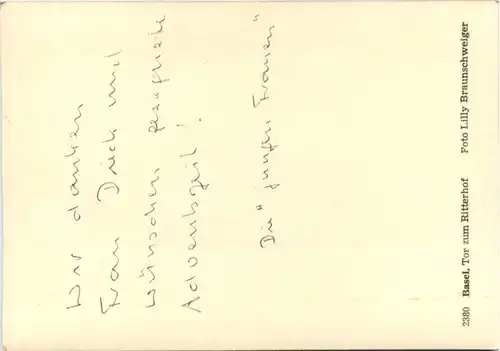 Wir danken
Frau Dick und
wünschen gesegnete
Adventszeit!
Die "jungen Frauen"
2380 Basel, Tor zum Ritterhof Foto Lilly Braunschweiger